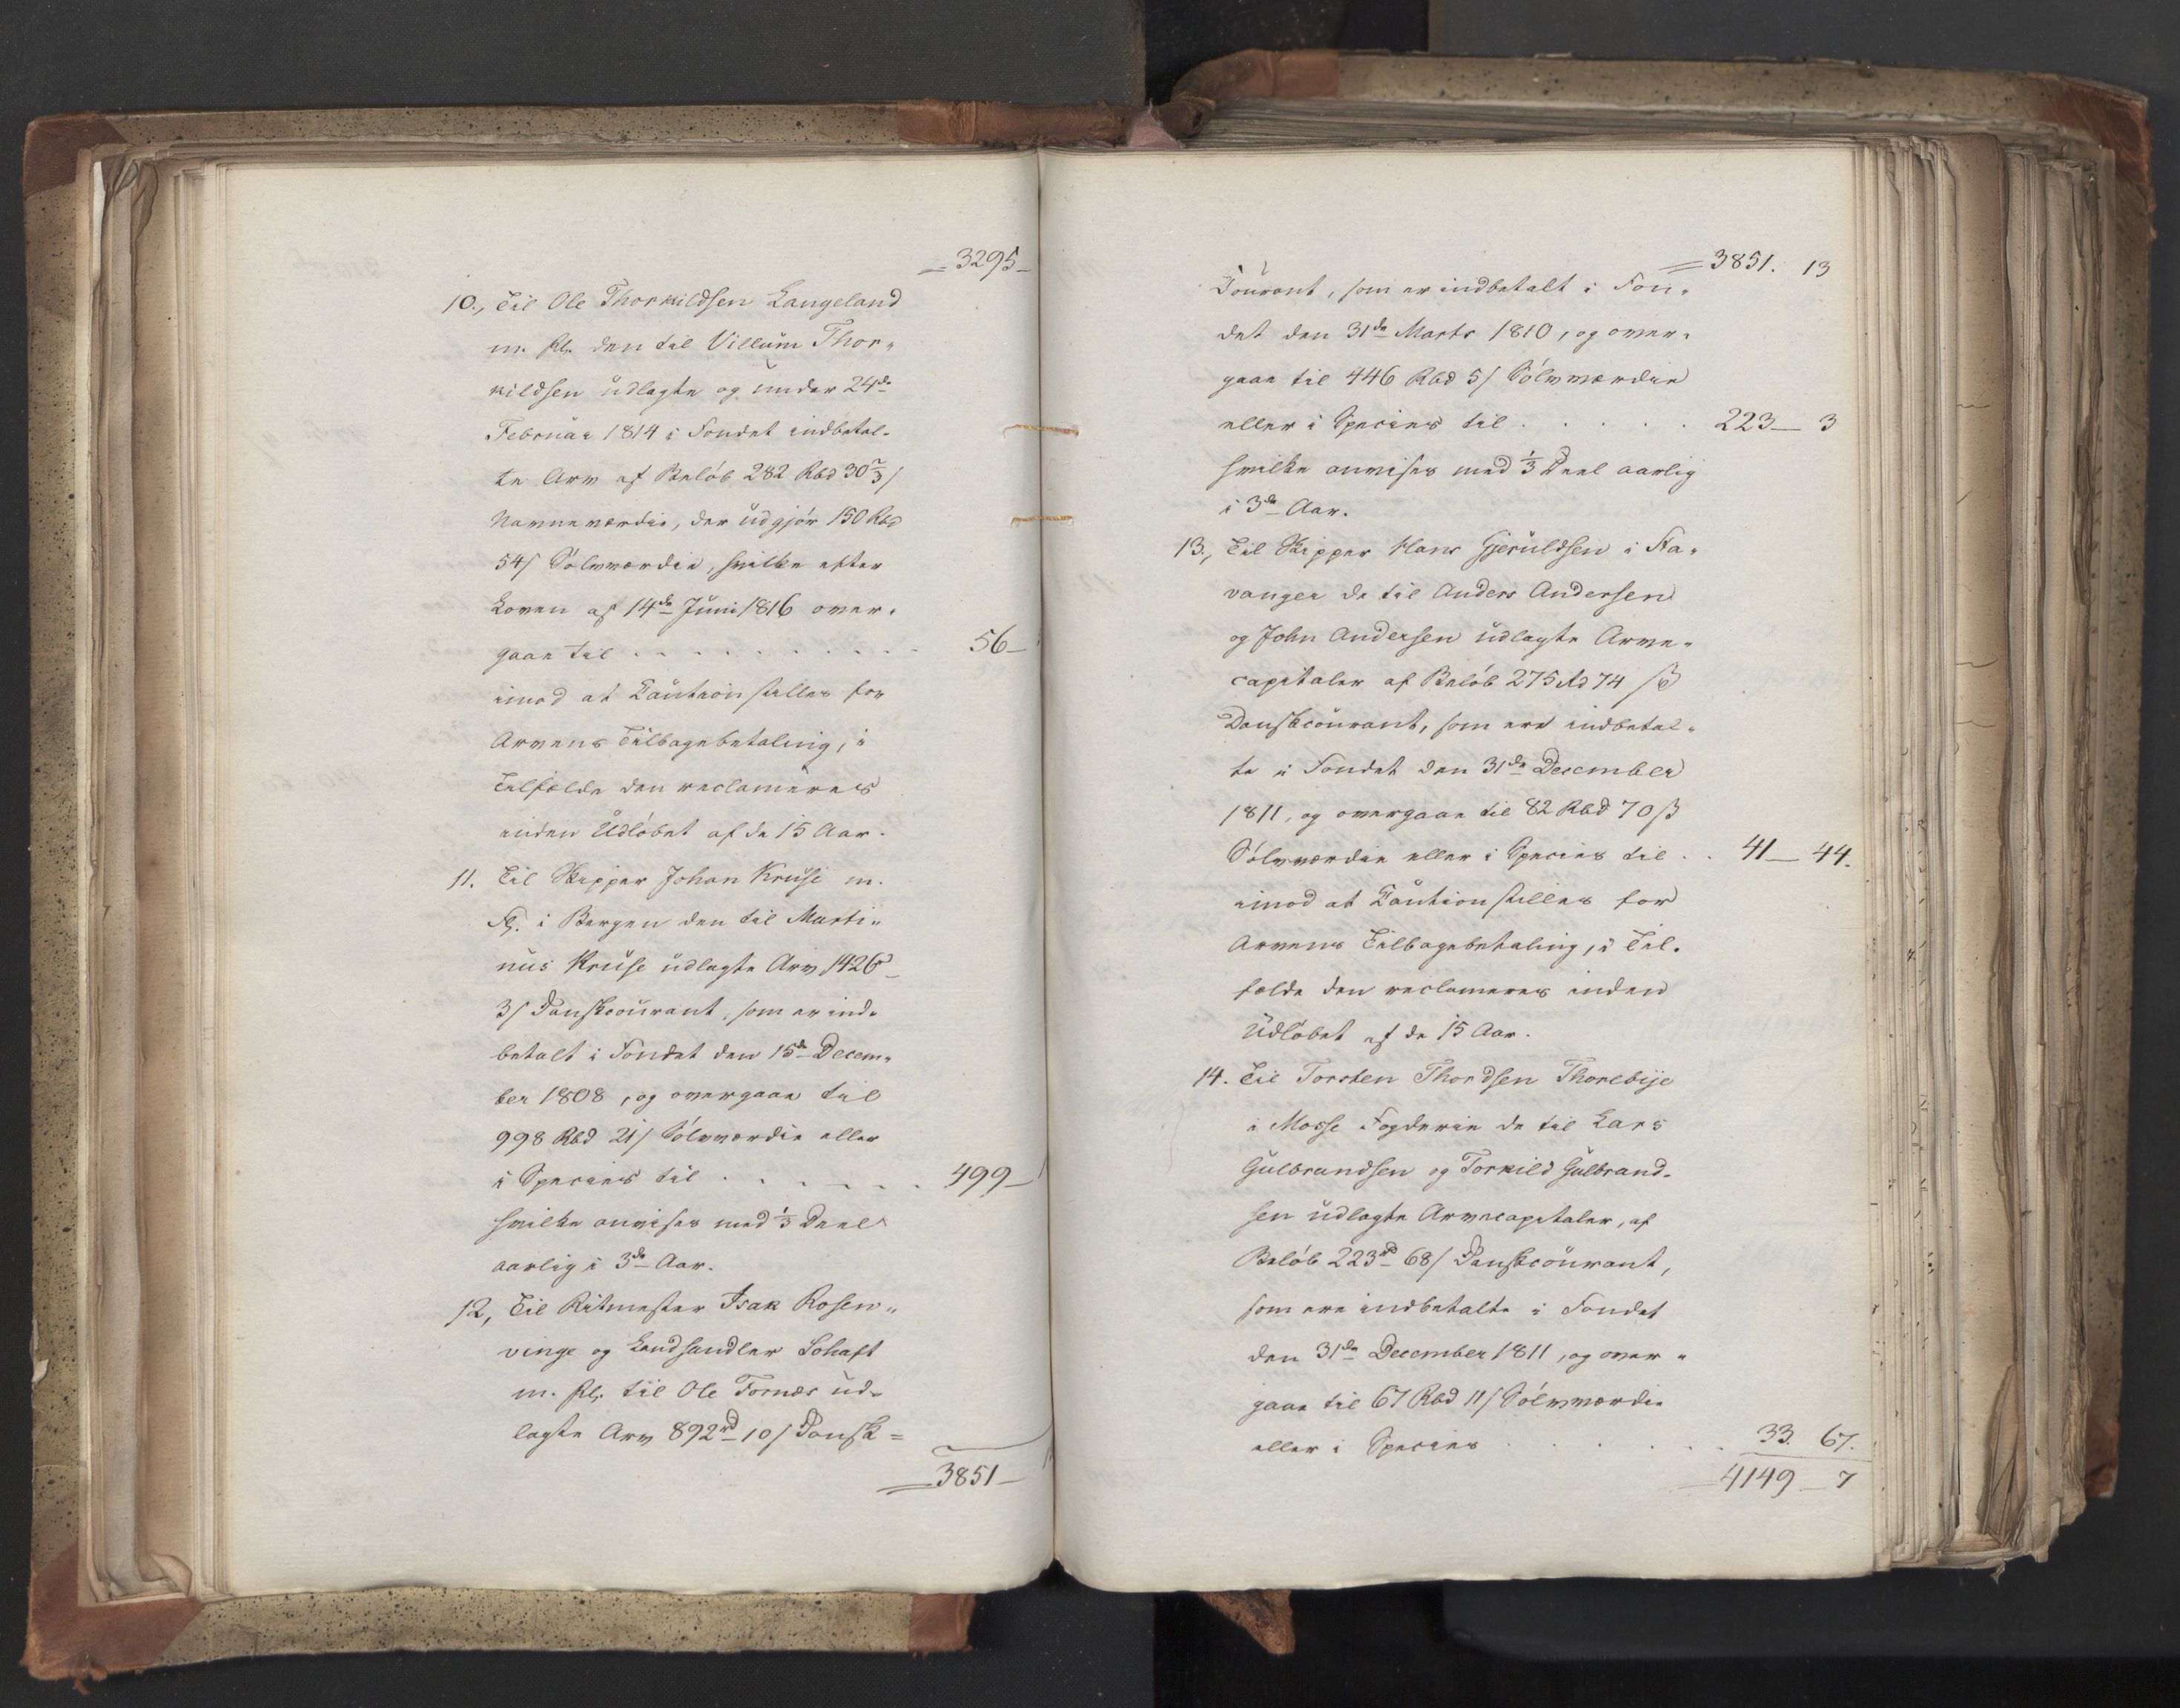 = 3295 —
10., Til Ole Thorkildsen Langeland
m. fl. den til Villum Thor-
kildsen udlagte og under 24de
Februar 1814 i Fondet indbetal-
te Arv af Beløb 282 Rbd 30 2/3 s
Navneværdie, der udgjør 150 Rbd
54 s Sølvværdie, hvilke efter
Loven af 14de Juni 1816 over-
gaae til . . . . . . . . . . 56 —
imod at Caution stilles for
Arvens Tilbagebetaling, i
Tilfælde den reclameres
inden Udløbet af de 15 Aar.
11. Til Skipper Johan Kruse m.
fl. i Bergen den til Marti-
nus Kruse udlagte Arv 1426 rd
3 s Danskcourant, som er ind-
betalt i Fondet den 15de Decem-
ber 1808, og overgaae til
998 Rbd 21 s Sølvværdie eller
i Species til . . . . . . . 499 —
hvilke anvises med 1/3 Deel
aarlig i 3de Aar.
12, Til Ritmester Isak Rosen-
vinge og Landhandler Schaft
m. fl. til Ole Fornæs ud-
lagte Arv 892 rd 10 s Dansk =
= 3851 —
= 3851. 13
Courant, som er indbetalt i Fon-
det den 31de Marts 1810, og over-
gaae til 446 Rbd 5 s Sølvværdie
eller i Species til . . . . . . 223 — 3
hvilke anvises med 1/3 Deel aarlig
i 3de Aar.
13., Til Skipper Hans Gjeruldsen i Sta-
vanger de til Anders Andersen
og John Andersen udlagte Arve-
capitaler af Beløb 275 Rd 74 ß
Danskcourant, som ere indbetal-
te i Fondet den 31de December
1811, og overgaae til 82 Rbd 70 ß
Sølvværdie eller i Species til . . 41 — 44.
imod at Caution stilles for
Arvens Tilbagebetaling, i Til-
fælde den reclameres inden
Udløbet af de 15 Aar.
14. Til Torsten Thordsen Thorebije
i Mosse Fogderie de til Lars
Gulbrandsen og Torkild Gulbrand-
sen udlagte Arvecapitaler, af
Beløb 223 rd 68 s Danskcourant,
som ere indbetalte i Fondet
den 31de December 1811, og over-
gaae til 67 Rbd 11 s Sølvværdie
eller i Species . . . . . . 33. 67.
4149 — 7